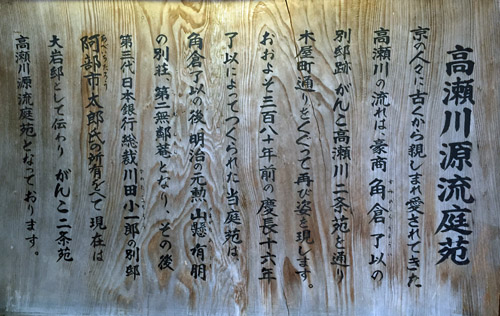 高瀬川源流庭苑
京の人々に古くから親しまれ愛されてきた
高瀬川の流れは、豪商 角倉了以の
別邸跡 がんこ高瀬川二条苑を通り
木屋町通りをくぐって再び姿を現します。
おおよそ三百八十年前の慶長十六年
了以によってつくられた当庭苑は
角倉了以の後 明治の元勲 山縣有朋
の別荘、第二無鄰菴となり、その後
第三代日本銀行総裁川田小一郎の別邸
阿部市太郎氏の所有を経て 現在は
大岩邸として伝わり がんこ二条苑
高瀬川源流庭苑となっております。